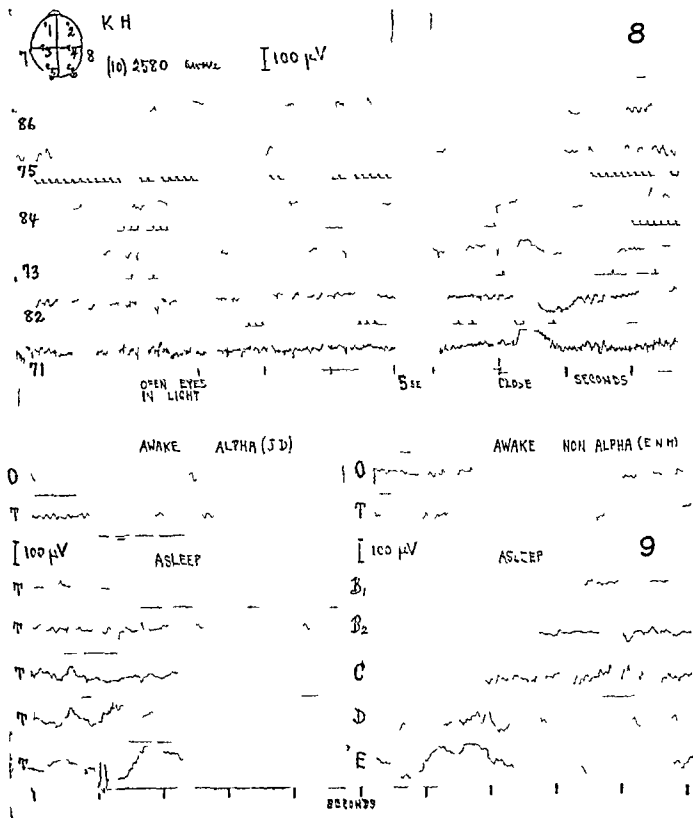 KH
8
1 2
7 3 4 8
5 6
(10) 2580 awake
100 µV
86
75
84
73
82
71
OPEN EYES
IN LIGHT
5 SE
CLOSE
SECONDS
AWAKE ALPHA (JD)
AWAKE NON ALPHA (ENM)
O
O
T
T
100 µV
ASLEEP
100 µV
ASLEEP
9
T
B1
T
B2
T
C
T
D
T
E
SECONDS